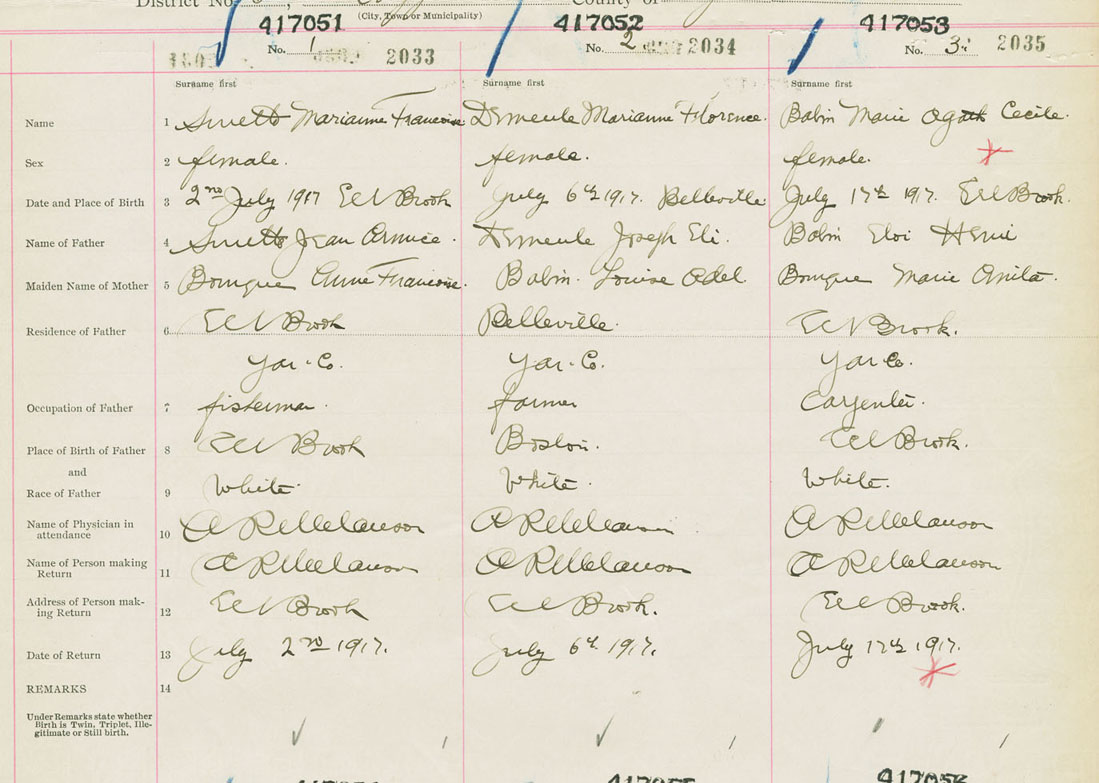 District No.
County of
(City, Town or Municipality)
417051 417052 417053
No. 1 2033 No. 2 2034 No. 3. 2035
Surname first Surname first Surname first
Name 1 Surette Marianne Francoise Demeule Marianne Florence. Babin Marie Agath Cecile.
Sex 2 female. female. female.
Date and Place of Birth 3 2nd July 1917 Eel Brook July 6th 1917. Belleville July 17th 1917. Eel Brook.
Name of Father 4 Surette Jean Demeule Joseph Eli. Babin Eloi Henri
Maiden Name of Mother 5 Bourque Anne Francoise. Babin. Louise Adel Bourque Marie Anita.
Residence of Father 6 Eel Brook Belleville. Eel Brook.
Yar. Co. Yar. Co. Yar Co.
Occupation of Father 7 fisherman. farmer Carpenter.
Place of Birth of Father 8 Eel Brook Boston. Eel Brook.
and
Race of Father 9 White. White. White.
Name of Physician in
attendance 10 A R Melanson A R Melanson A R Melanson
Name of Person making
Return 11 A R Melanson A R Melanson A R Melanson
Address of Person mak-
ing Return 12 Eel Brook Eel Brook. Eel Brook.
Date of Return 13 July 2nd 1917. July 6th 1917. July 17th 1917.
REMARKS 14
Under Remarks state whether
Birth is Twin, Triplet, Ille-
gitimate or Still birth.